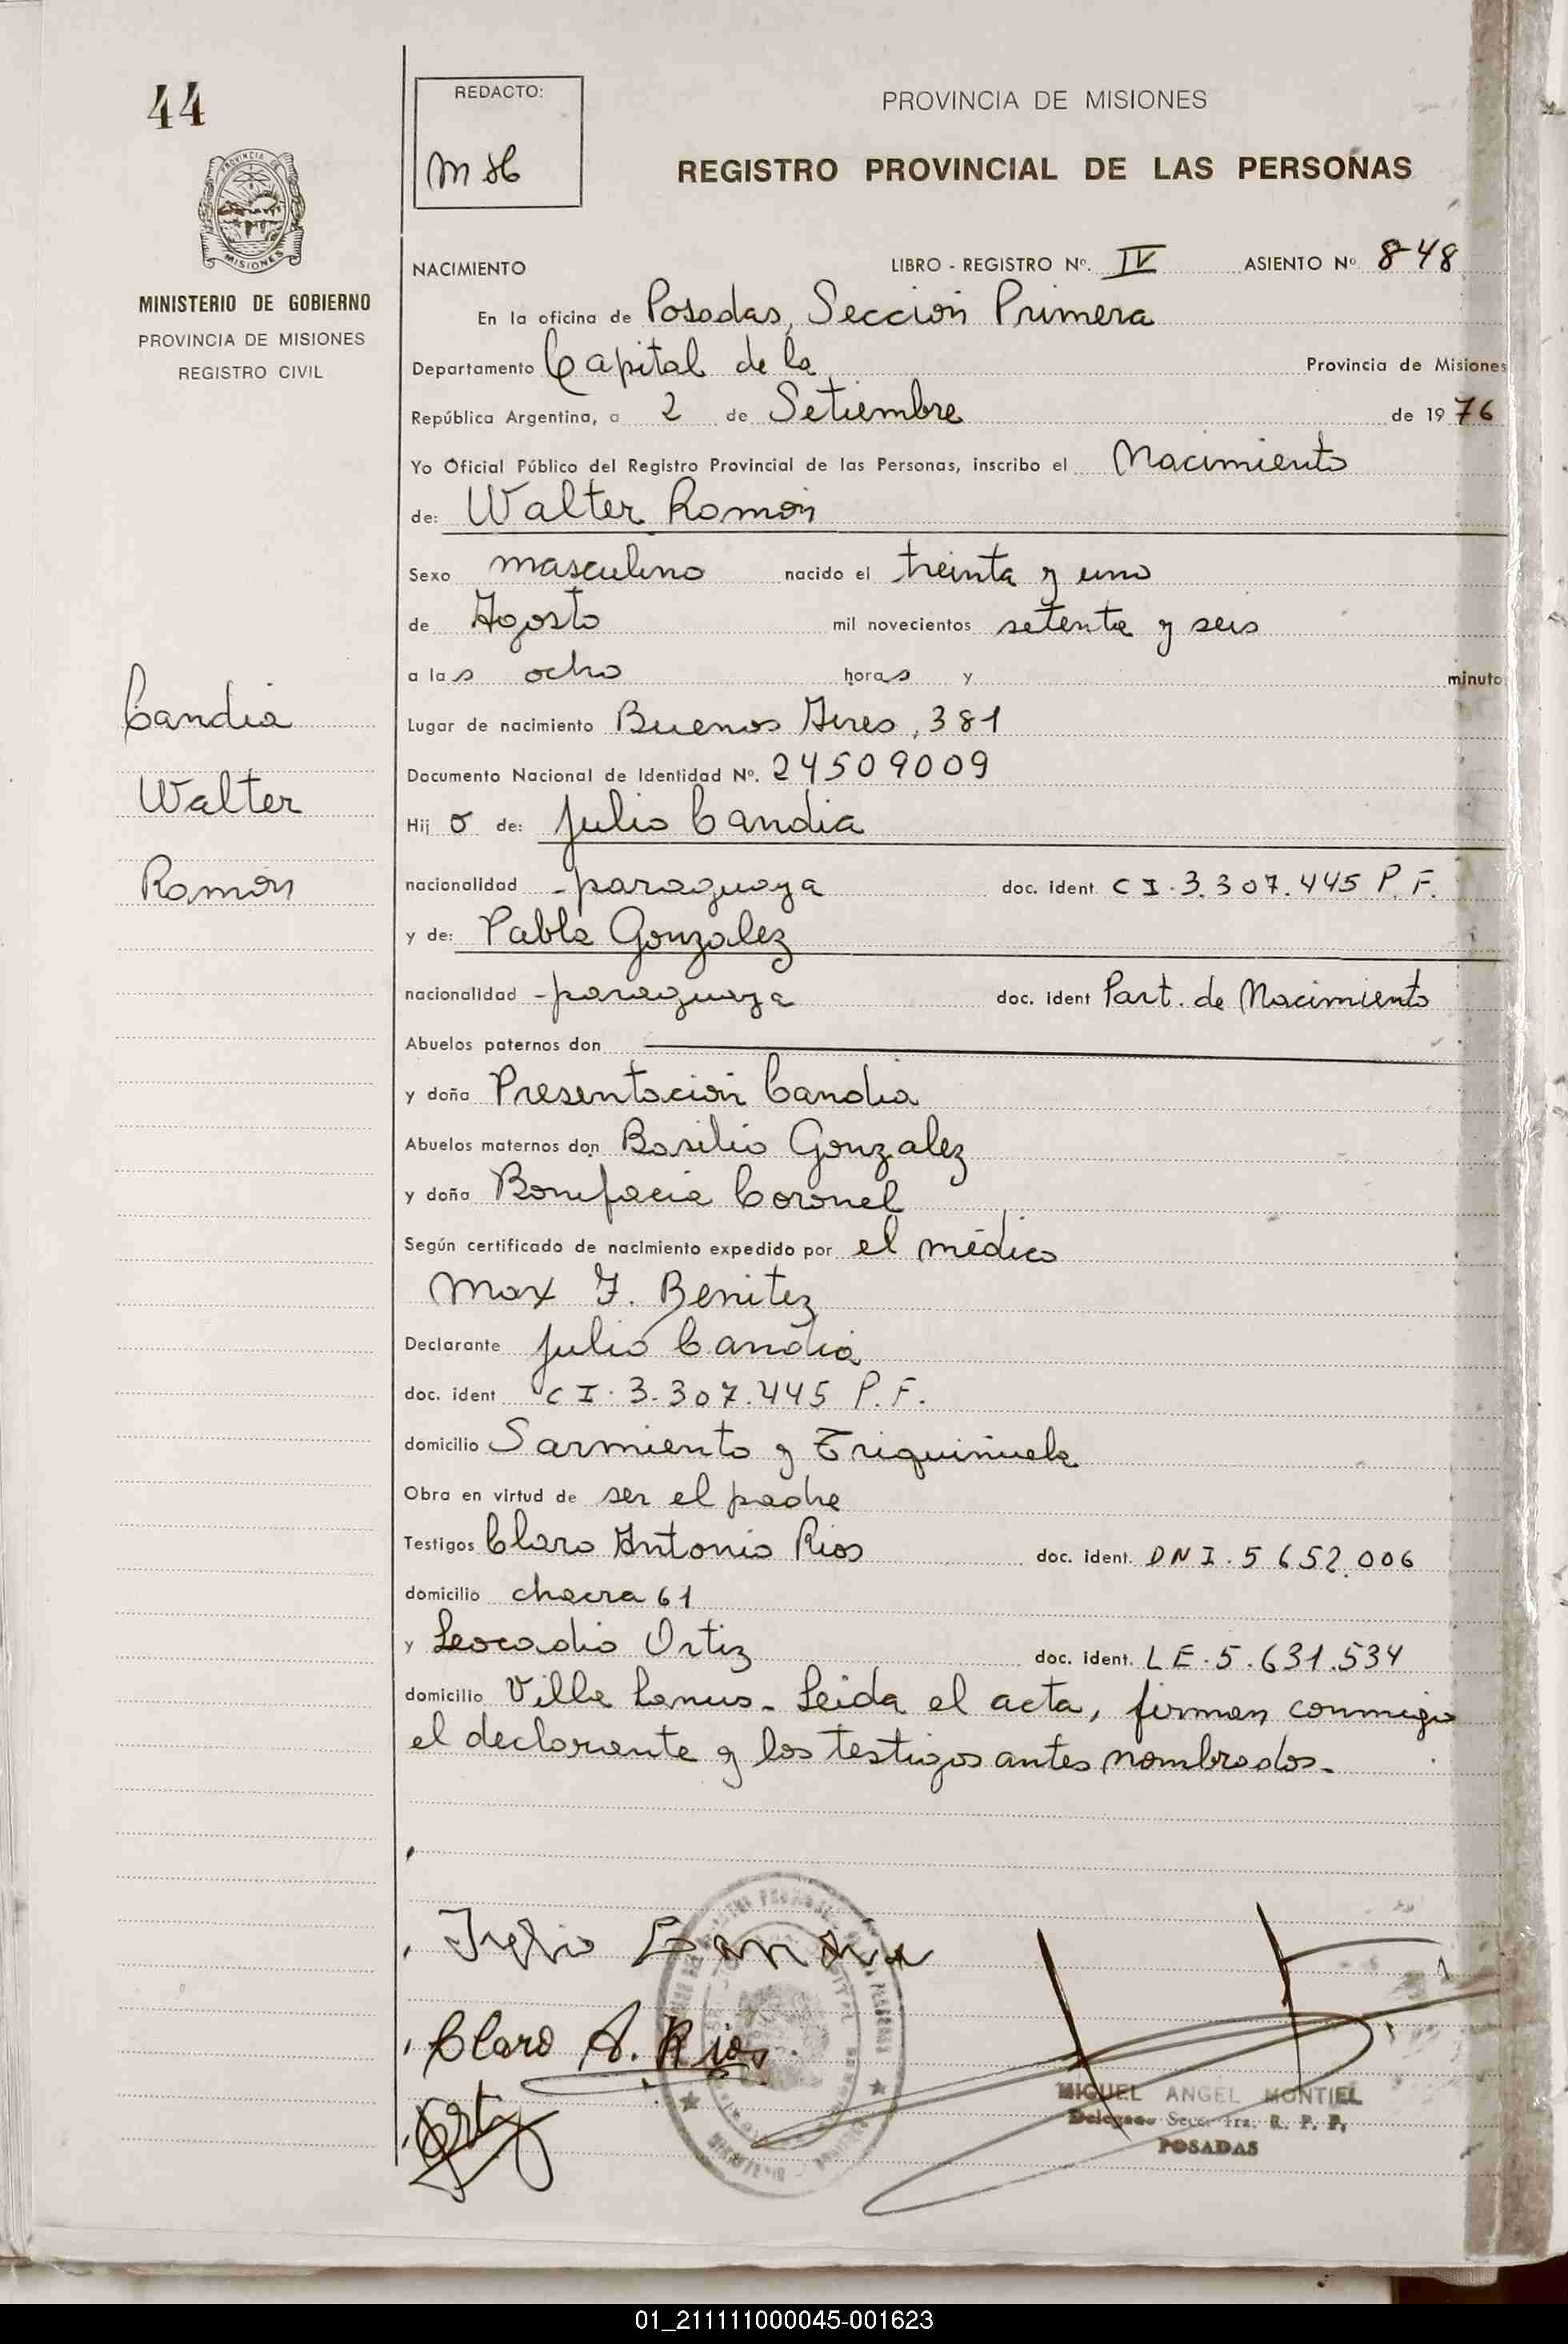 44
REDACTO:
MH
PROVINCIA DE MISIONES
REGISTRO PROVINCIAL DE LAS PERSONAS
PROVINCIA DE
MISIONES
MINISTERIO DE GOBIERNO
PROVINCIA DE MISIONES
REGISTRO CIVIL
NACIMIENTO LIBRO - REGISTRO Nº. IV ASIENTO Nº 848
En la oficina de Posadas, Sección Primera
Departamento Capital de la Provincia de Misiones
República Argentina, a 2 de Setiembre de 1976
Yo Oficial Público del Registro Provincial de las Personas, inscribo el Nacimiento
de: Walter Ramón
Sexo masculino nacido el treinta y uno
de Agosto mil novecientos setenta y seis
a las ocho horas y minuto
Lugar de nacimiento Buenos Aires, 381
Documento Nacional de Identidad Nº. 24509009
Hijo de: Julio Candia
nacionalidad -paraguaya doc. ident. CI. 3.307.445 P.F.
y de: Pabla Gonzalez
nacionalidad -paraguaya doc. ident Part. de Nacimiento
Abuelos paternos don
y doña Presentación Candia
Abuelos maternos don Basilio Gonzalez
y doña Bonifacia Coronel
Según certificado de nacimiento expedido por el médico
Max F. Benitez
Declarante Julio Candia
doc. ident CI. 3.307.445 P.F.
domicilio Sarmiento y Triquiñuela
Obra en virtud de ser el padre
Testigos Claro Antonio Rios doc. ident. DNI. 5652.006
domicilio chacra 61
y Leocadio Ortiz doc. ident. LE. 5.631.534
domicilio Villa Lanus. Leida el acta, firman conmigo
el declarante y los testigos antes nombrados.
Candia
Walter
Ramón
Julio Candia
Claro A. Rios
Ortiz
MIGUEL ANGEL MONTIEL
Delegado Secc. 1ra. R. P. P.
POSADAS
01_211111000045-001623